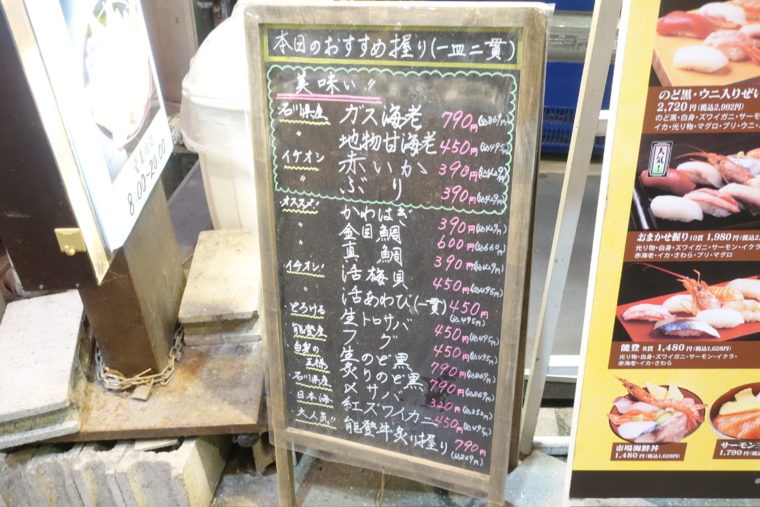 本日のおすすめ握り(一皿二貫)
美味い!!
石川県産 ガス海老 790円(込869円)
〃 地物甘海老 450円(込495円)
イチオシ 赤いか 390円(込429円)
〃 ぶり 390円(込429円)
オススメ! かわはぎ 390円(込429円)
〃 金目鯛 600円(込660円)
〃 真鯛 390円(込429円)
イチオシ! 活梅貝 450円(込495円)
活あわび(一貫) 450円(込495円)
とろける 生トロサバ 450円(込495円)
能登産 フグ 450円(込495円)
白身の王様 生のど黒 790円(込869円)
石川県産 炙りのど黒 790円(込869円)
日本海 〆サバ 320円(込352円)
大人気!! 紅ズワイカニ 450円(込495円)
能登牛炙り握り 790円(込869円)
8:00-20:00
のど黒・ウニ入りぜい
2,720円(税込2,992円)
のど黒・白身・ズワイガニ・サーモ
イカ・光り物・マグロ・ブリ・ウニ・
人気!
おまかせ握り10貫 1,980円(税込2,
光り物・白身・ズワイガニ・サーモン・イクラ
赤海老・イカ・さわら・ブリ・マグロ
能登 8貫 1,480円(税込1,628円)
光り物・白身・ズワイガニ・サーモン・イクラ・
赤海老・イカ・さわら
市場海鮮丼
1,480円(税込1,628円)
サーモン
1,790円(税込